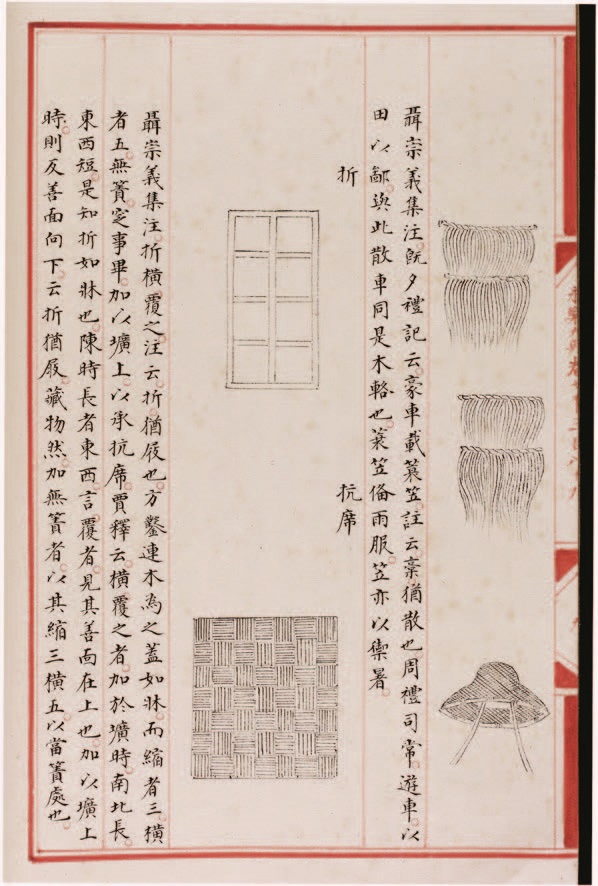 聶崇義集注旣夕禮記云稾車載蓑笠註云稾猶散也周禮司常斿車以
田以鄙與此散車同是木輅也蓑笠偹雨服笠亦以禦暑
折
抗席
聶崇義集注折橫覆之注云折猶庪也方鑿連木為之蓋如牀而縮者三橫
者五無簀窆事畢加以壙上以承抗席賈釋云橫覆之者加於壙時南北長
東西短是知折如牀也陳時長者東西言覆者見其善面在上也加以壙上
時則反善面向下云折猶庪藏物然加無簀者以其縮三橫五以當簀處也